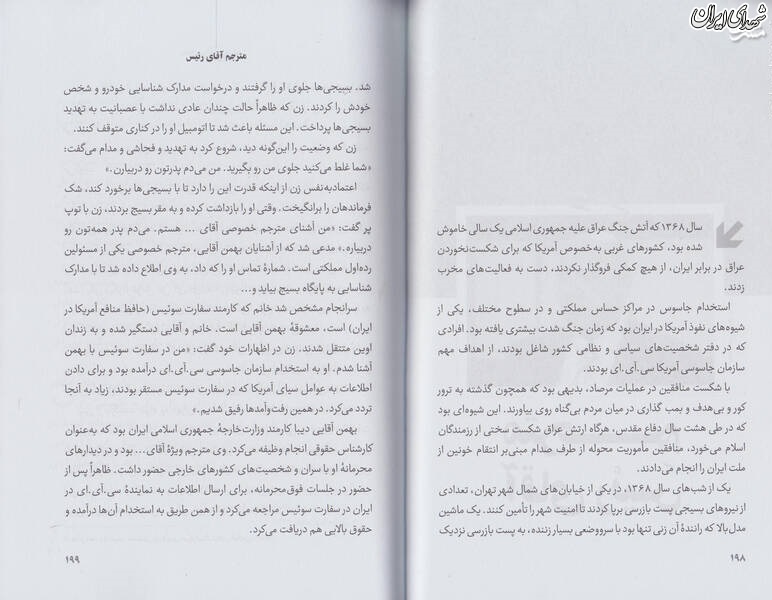 شهدای ایران
سال ۱۳۶۸ که آتش جنگ عراق علیه جمهوری اسلامی یک سالی خاموش
شده بود، کشورهای غربی به‌خصوص آمریکا که برای شکست‌نخوردن
عراق در برابر ایران، از هیچ کمکی فروگذار نکردند، دست به فعالیت‌های مخرب
زدند.
استخدام جاسوس در مراکز حساس مملکتی و در سطوح مختلف، یکی از
شیوه‌های نفوذ آمریکا در ایران بود که زمان جنگ شدت بیشتری یافته بود. افرادی
که در دفتر شخصیت‌های سیاسی و نظامی کشور شاغل بودند، از اهداف مهم
سازمان جاسوسی آمریکا سی.آی.ای بودند.
با شکست منافقین در عملیات مرصاد، بدیهی بود که همچون گذشته به ترور
کور و بی‌هدف و بمب گذاری در میان مردم بی‌گناه روی بیاورند. این شیوه‌ای بود
که در طی هشت سال دفاع مقدس، هرگاه ارتش عراق شکست سختی از رزمندگان
اسلام می‌خورد، منافقین مأموریت محوله از طرف صدام مبنی‌بر انتقام خونین از
ملت ایران را انجام می‌دادند.
یک از شب‌های سال ۱۳۶۸، در یکی از خیابان‌های شمال شهر تهران، تعدادی
از نیروهای بسیجی پست بازرسی برپا کردند تا امنیت شهر را تأمین کنند. یک ماشین
مدل‌بالا که رانندهٔ آن زنی تنها بود با سرووضعی بسیار زننده، به پست بازرسی نزدیک
۱۹۸
مترجم آقای رئیس
شد. بسیجی‌ها جلوی او را گرفتند و درخواست مدارک شناسایی خودرو و شخص
خودش را کردند. زن که ظاهراً حالت چندان عادی نداشت با عصبانیت به تهدید
بسیجی‌ها پرداخت. این مسئله باعث شد تا اتومبیل او را در کناری متوقف کنند.
زن که وضعیت را این‌گونه دید، شروع کرد به تهدید و فحاشی و مدام می‌گفت:
«شما غلط می‌کنید جلوی من رو بگیرید. من می‌دم پدرتون رو دربیارن.»
اعتمادبه‌نفس زن از اینکه قدرت این را دارد تا با بسیجی‌ها برخورد کند، شک
فرماندهان را برانگیخت. وقتی او را بازداشت کرده و به مقر بسیج بردند، زن با توپ
پر گفت: «من آشنای مترجم خصوصی آقای ... هستم. می‌دم پدر همه‌تون رو
دربیاره.» مدعی شد که از آشنایان بهمن آقایی، مترجم خصوصی یکی از مسئولین
رده‌اول مملکتی است. شمارهٔ تماس او را که داد، به وی اطلاع داده شد تا با مدارک
شناسایی به پایگاه بسیج بیاید و...
سرانجام مشخص شد خانم که کارمند سفارت سوئیس (حافظ منافع آمریکا در
ایران) است، معشوقهٔ بهمن آقایی است. خانم و آقایی دستگیر شده و به زندان
اوین منتقل شدند. زن در اظهارات خود گفت: «من در سفارت سوئیس با بهمن
آشنا شدم. او به استخدام سازمان جاسوسی سی.آی.ای درآمده بود و برای دادن
اطلاعات به عوامل سیای آمریکا که در سفارت سوئیس مستقر بودند، زیاد به آنجا
تردد می‌کرد. در همین رفت‌وآمدها رفیق شدیم.»
بهمن آقایی دیبا کارمند وزارت‌خارجهٔ جمهوری اسلامی ایران بود که به‌عنوان
کارشناس حقوقی انجام وظیفه می‌کرد. وی مترجم ویژهٔ آقای... بود و در دیدارهای
محرمانهٔ او با سران و شخصیت‌های کشورهای خارجی حضور داشت. ظاهراً پس از
حضور در جلسات فوق‌محرمانه، برای ارسال اطلاعات به نمایندهٔ سی.آی.ای در
ایران در سفارت سوئیس مراجعه می‌کرد و از همن طریق به استخدام آن‌ها درآمده و
حقوق بالایی هم دریافت می‌کرد.
۱۹۹